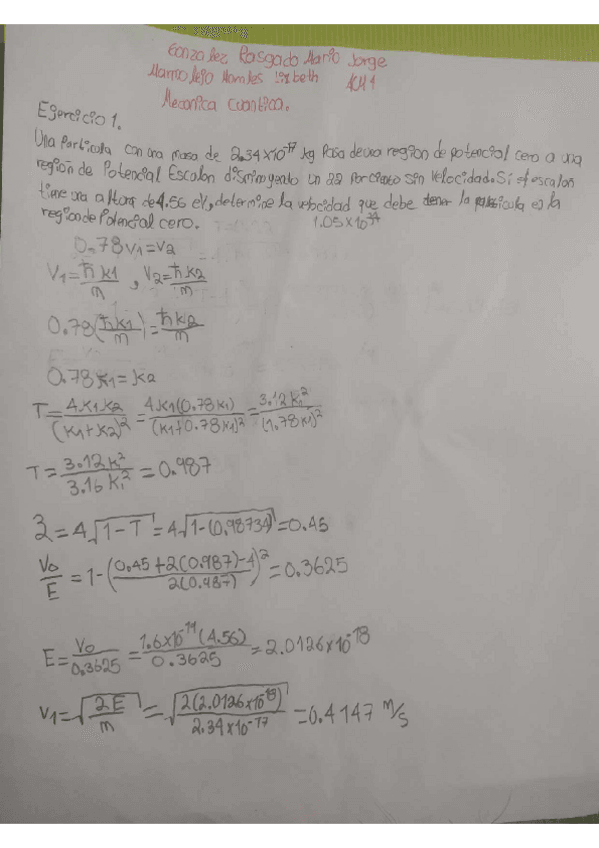 Gonzalez Rasgado Mario Jorge
Marmolejo Montes Lizbeth 4CM1
Mecanica Cuantica.
Ejercicio 1.
Una Particula con una masa de 2.34x10^-17 kg Pasa de una region de potencial cero a una
region de Potencial Escalon disminuyendo un 22 Porciento sin Velocidad. Si el escalon
tiene una altura de 4.56 eV, determine la velocidad que debe tener la particula en la
region de Potencial cero. 1.05x10^34
0.78v1=v2
V1=ħk1/m , V2=ħk2/m
0.78(ħk1/m)=ħk2/m
0.78k1=k2
T=4k1k2/(k1+k2)^2=4k1(0.78k1)/(k1+0.78k1)^2=3.12k1^2/(1.78k1)^2
T=3.12k1^2/3.16k1^2=0.987
2=4√1-T=4√1-(0.98734)=0.45
V0/E=1-(0.45+2(0.987)-4/2(0.987))^2=0.3625
E=V0/0.3625=1.6x10^-19(4.56)/0.3625=2.0126x10^-18
V1=√2E/m=√2(2.0126x10^-18)/2.34x10^-17=0.4147 m/s